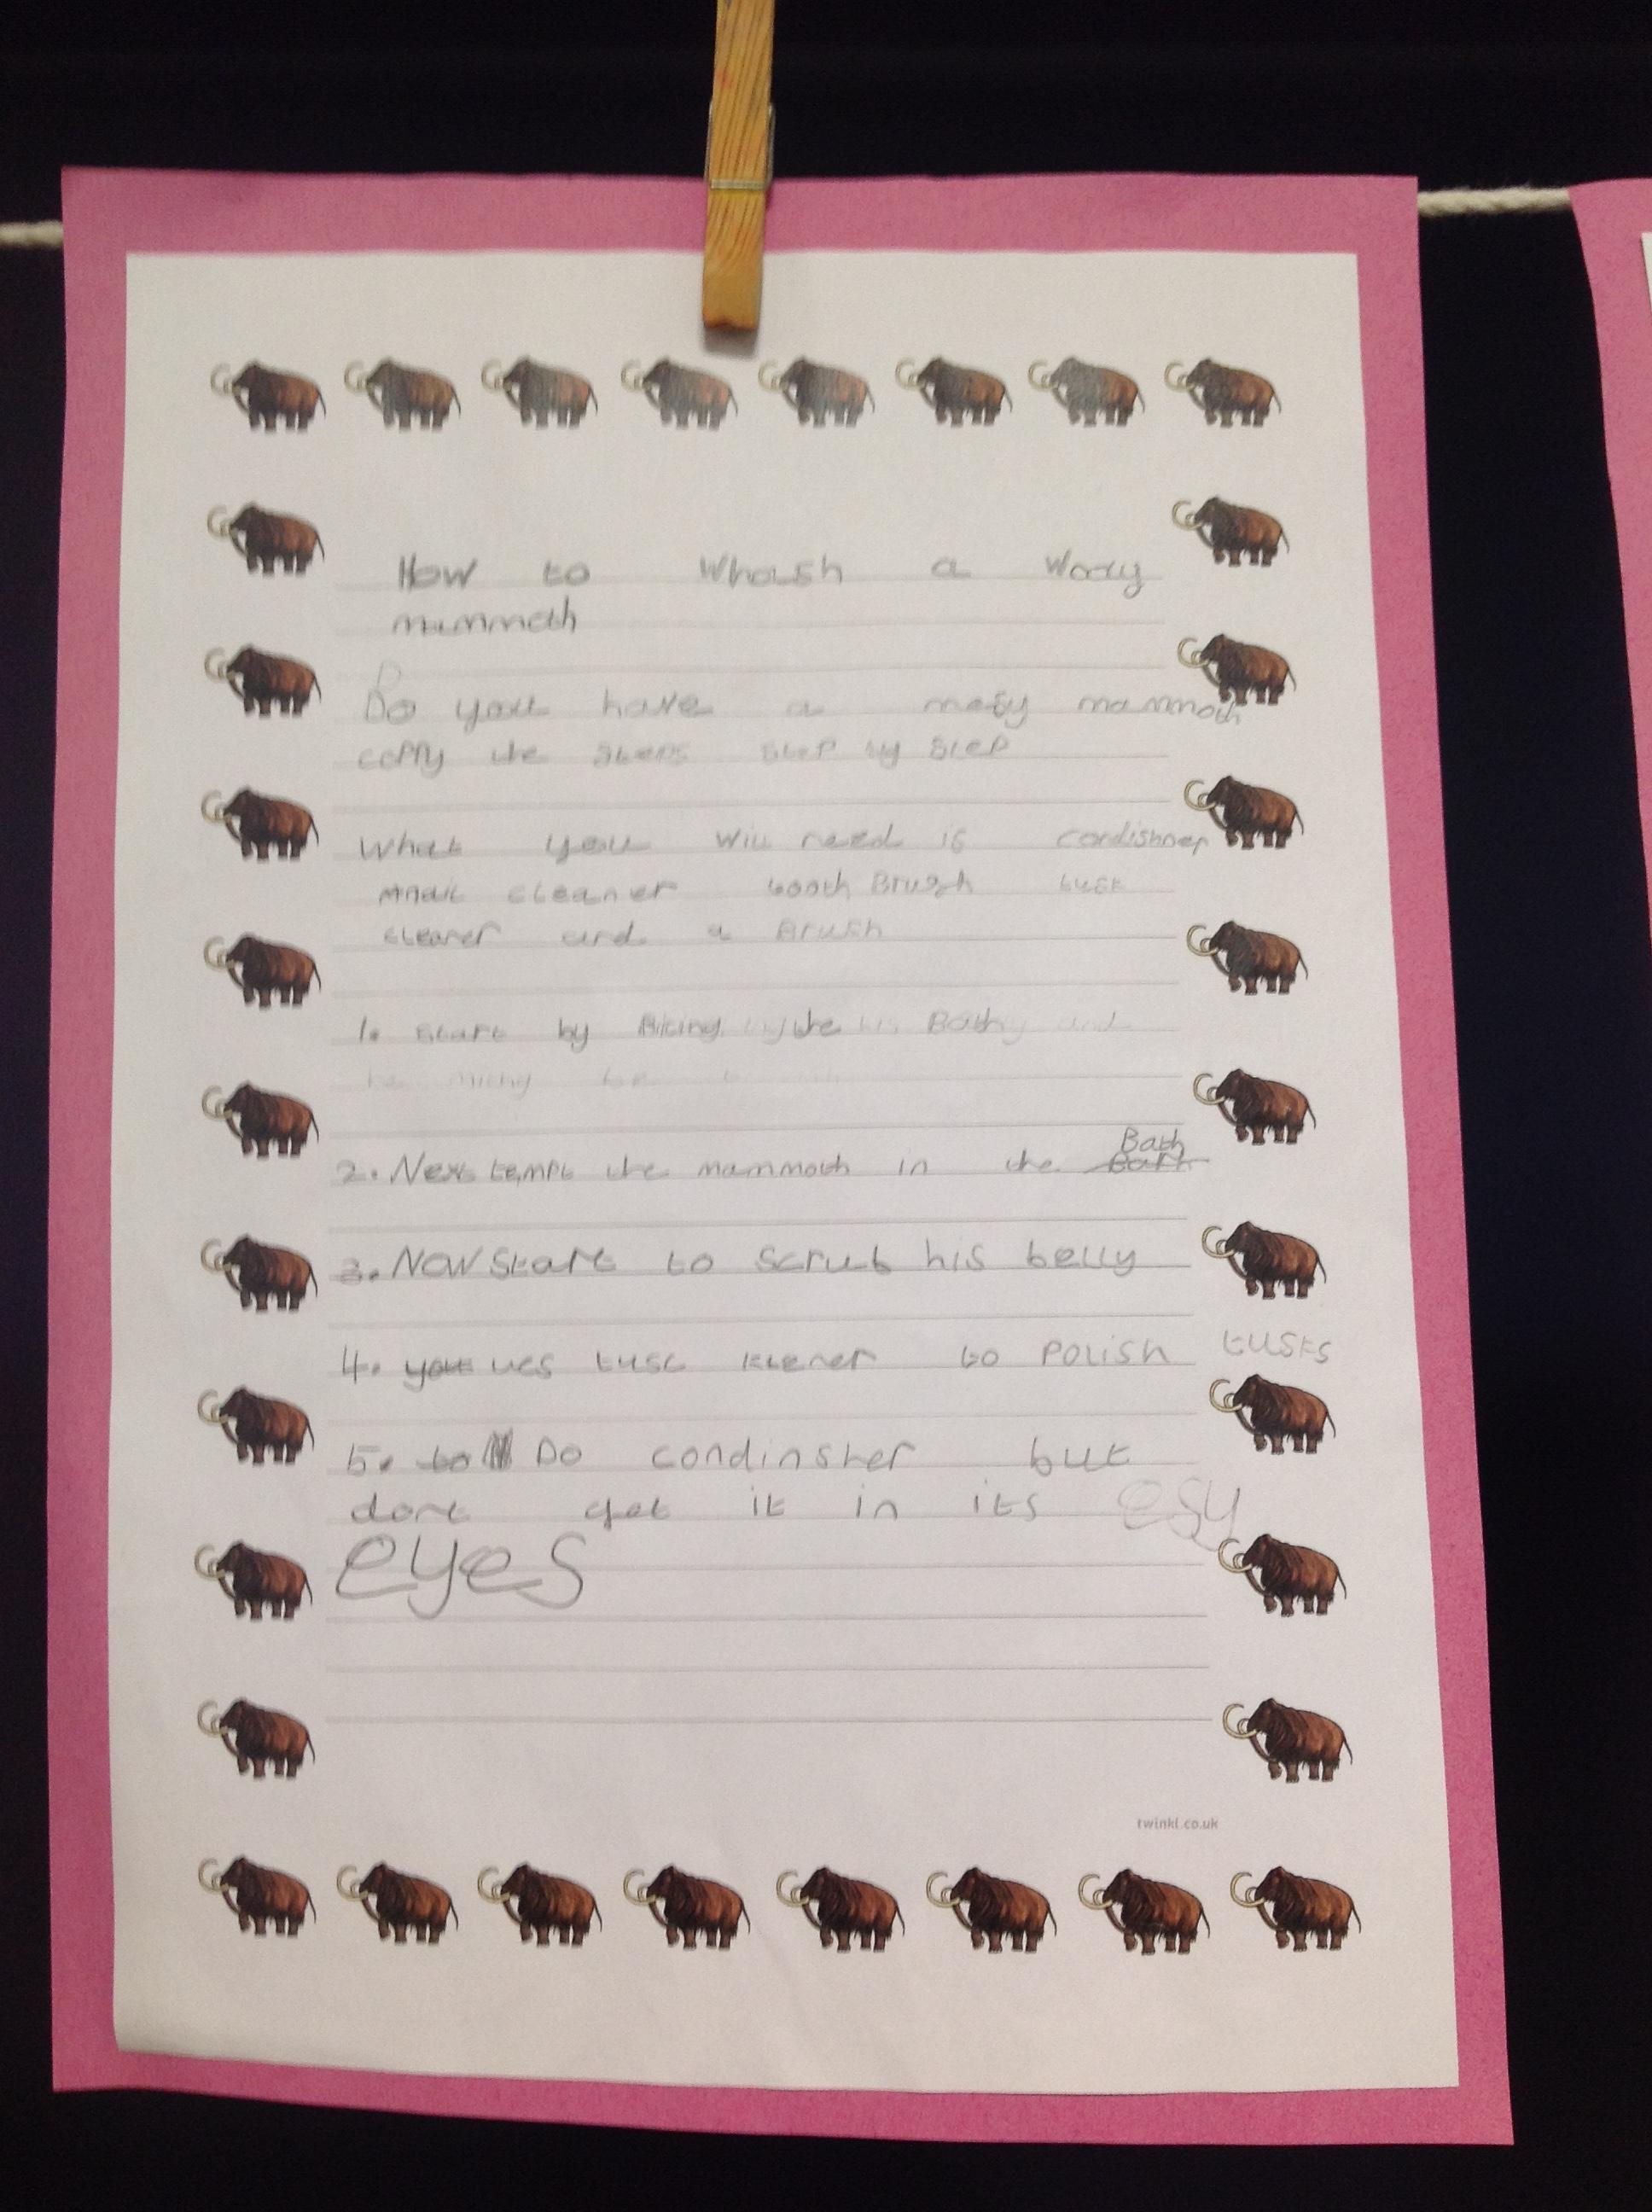 How to Whash a Wooly
mammoth
Do you have a mesy mammoth
coppy the steps step by step
What you will need is condishner
cleaner tooth Brush tusk
cleaner and a Brush
1. Start by
2. Next tempt the mammoth in the Bath
3. Now start to scrub his belly
4. you ues tusc klener to Polish tusks
5. to Do condinsher but
dont get it in its esy
eyes
twinkl.co.uk